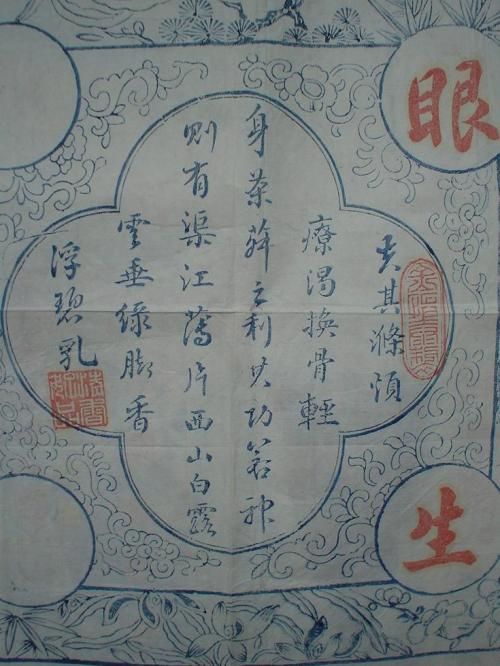 眼
生
夫其滌煩
療渴換骨輕
身茶荈之利其功若神
則有渠江薄片西山白露
雲垂綠脚香
浮碧乳